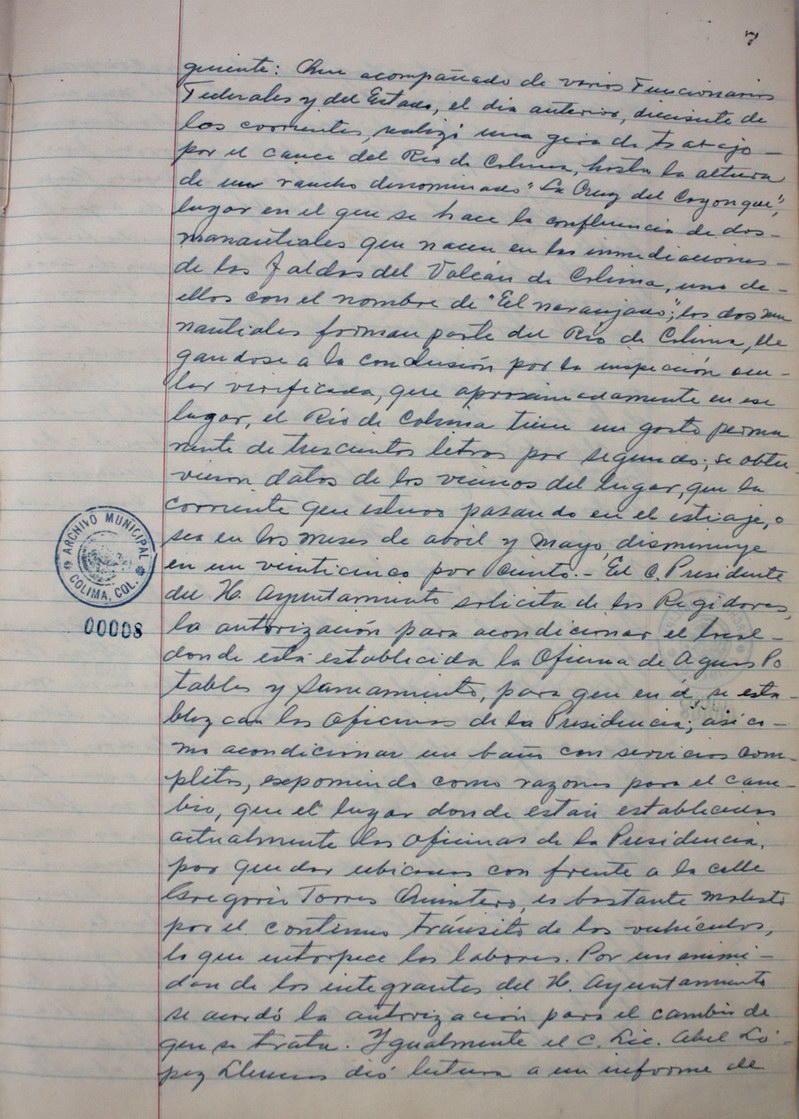 7
guiente: Que acompañado de varios Funcionarios
Federales y del Estado, el día anterior, diecisiete de
los corrientes, realizó una gira de trabajo —
por el cauce del Río de Colima, hasta la altura
de un rancho denominado "La Cruz del Coyonque",
lugar en el que se hace la confluencia de dos —
manantiales que nacen en las inmediaciones —
de las faldas del Volcán de Colima, uno de —
ellos con el nombre de "El naranjado"; los dos ma
nantiales forman parte del Río de Colima, lle
gandose a la conclusión por la inspección ocu —
lar virificada, que aproximadamente en ese
lugar, el Río de Colima tiene un gasto perma
nente de trescientos litros por segundo; se obtu
vieron datos de los vecinos del lugar, que la
corriente que estuvo pasando en el estiaje, o
sea en los meses de abril y mayo, disminuye
en un veinticinco por ciento.- El C. Presidente
del H. Ayuntamiento solicita de los Regidores,
la autorización para acondicionar el local —
donde está establecida la Oficina de Aguas Po
tables y Saneamiento, para que en él, se esta-
blezcan las Oficinas de la Presidencia; así co —
mo acondicionar un baño con servicios com —
pletos, exponiendo como razones para el cam —
bio, que el lugar donde están establecidas
actualmente las Oficinas de la Presidencia,
por quedar ubicadas con frente a la calle
Gregorio Torres Quintero, es bastante molesto
por el continuo tránsito de los vehículos,
lo que entorpece las labores. Por unanimi —
dad de los integrantes del H. Ayuntamiento
se acordó la autorización para el cambio de
que se trata. Ygualmente el C. Lic. Abel Ló -
pez Llerenas dió lectura a un informe de
ARCHIVO MUNICIPAL
COLIMA, COL.
00008